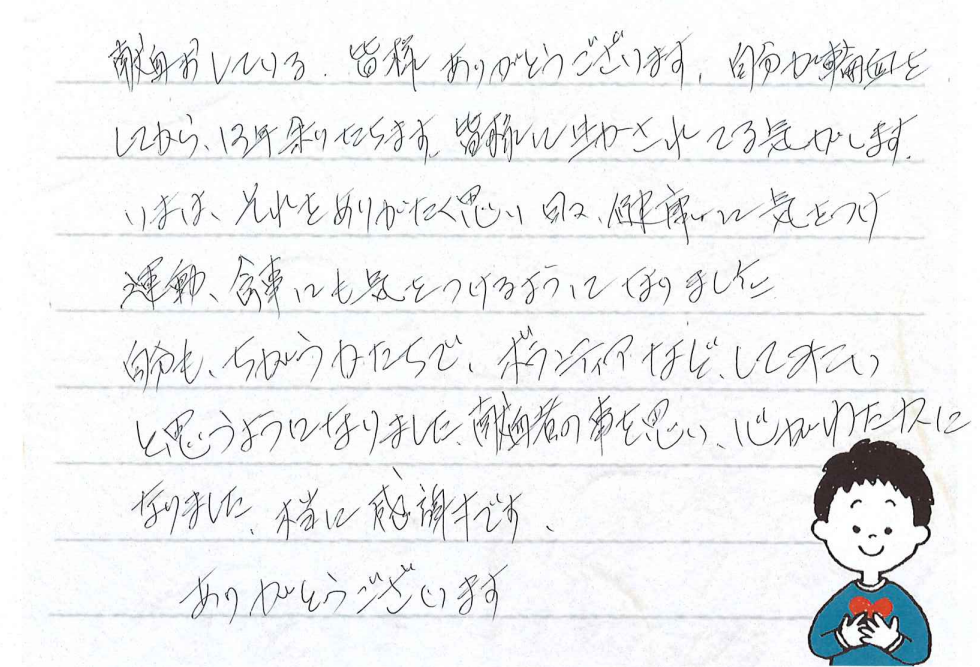 献血おしている、皆様ありがとうございます、自分が輸血を
してから、13年余りたちます、皆様に生かされてる気がします、
いまは、それをありがたく思い日々、健康に気をつけ
運動、食事にも気をつけるようになりました
自分も、ちがうかたちで、ボランティアなど、してみたい
と思うようになりました、献血者の事を思い、心がわた人に
なりました、本当に感謝です、
ありがとうございます